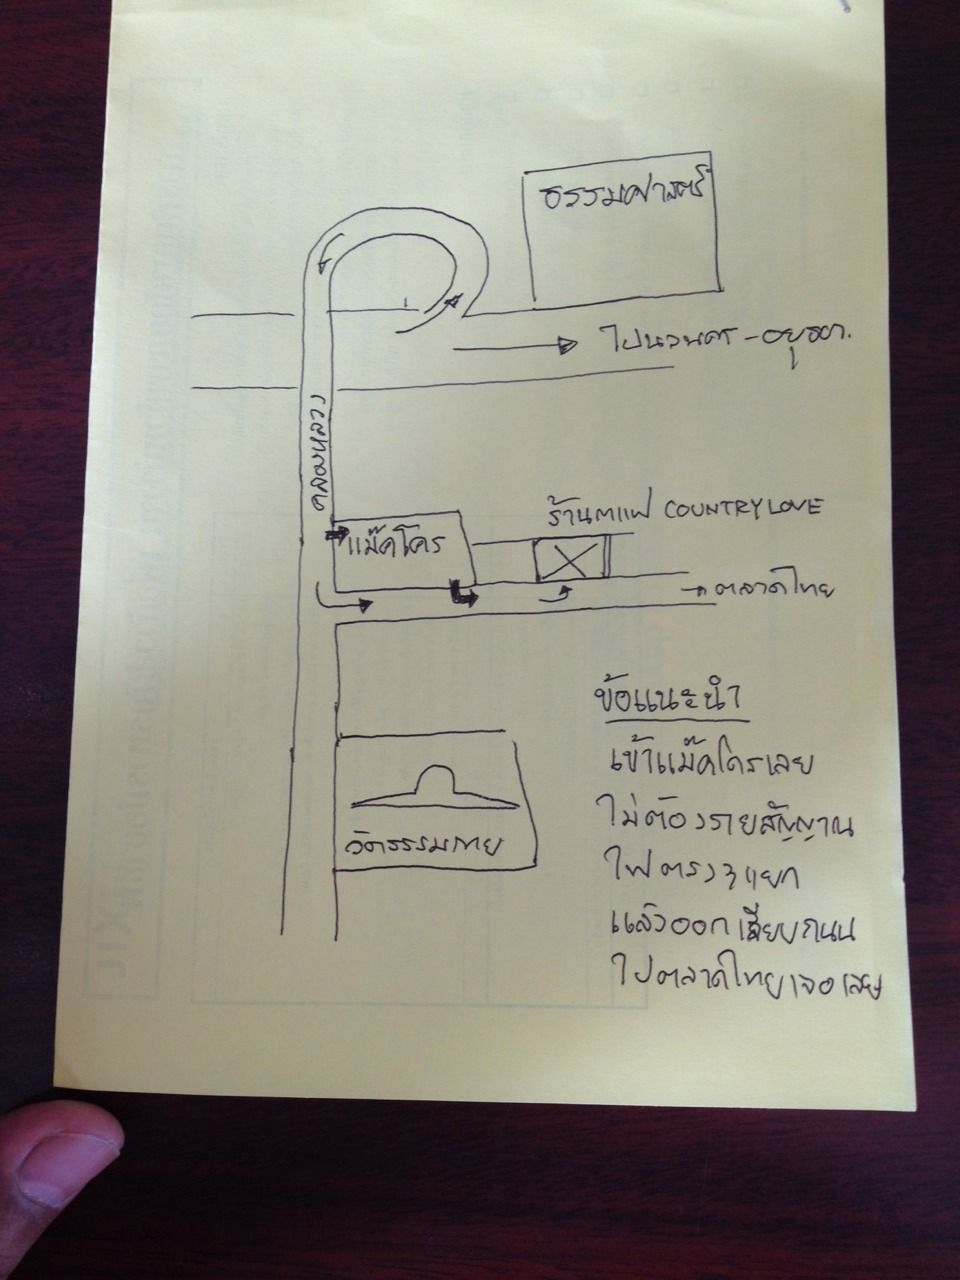 ธรรมศาสตร์
ไปนวนคร-อยุธยา.
คลองหลวง
ร้านกาแฟ COUNTRYLOVE
แม๊คโคร
ตลาดไทย
วัดธรรมกาย
ข้อแนะนำ
เข้าแม๊คโครเลย
ไม่ต้องรายสัญญาณ
ไฟตรง 3 แยก
แล้วออกเลียบถนน
ไปตลาดไทยเจอเลย